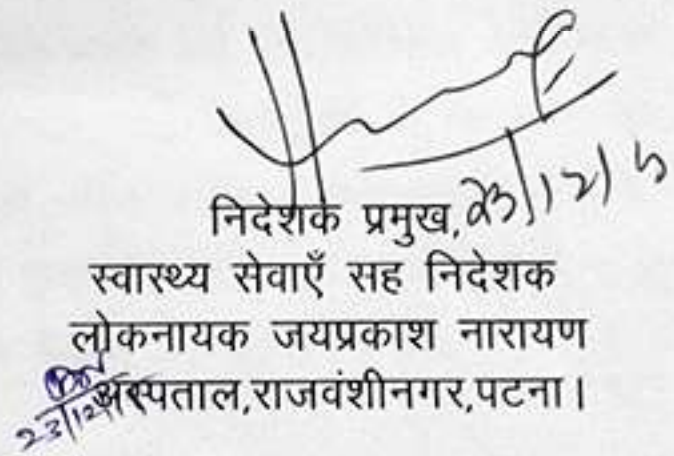 निदेशक प्रमुख, 23/12/
स्वास्थ्य सेवाएँ सह निदेशक
लोकनायक जयप्रकाश नारायण
अस्पताल,राजवंशीनगर,पटना।
23/12/